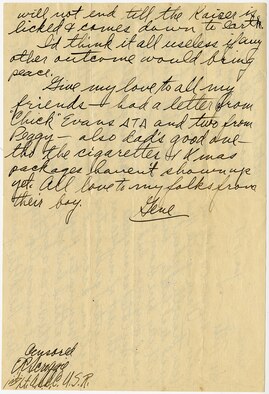 will not end till the Kaiser is
licked & comes down to earth.
I'd think it all useless if any
other outcome would bring
peace.
Give my love to all my
friends - had a letter from
"Chick" Evans ATA and two from
Peggy - also dad's good one -
tho the cigarettes & Xmas
packages haven't shown up
yet. All love to my folks from
their boy.
Gene
Censored
U.S.R.